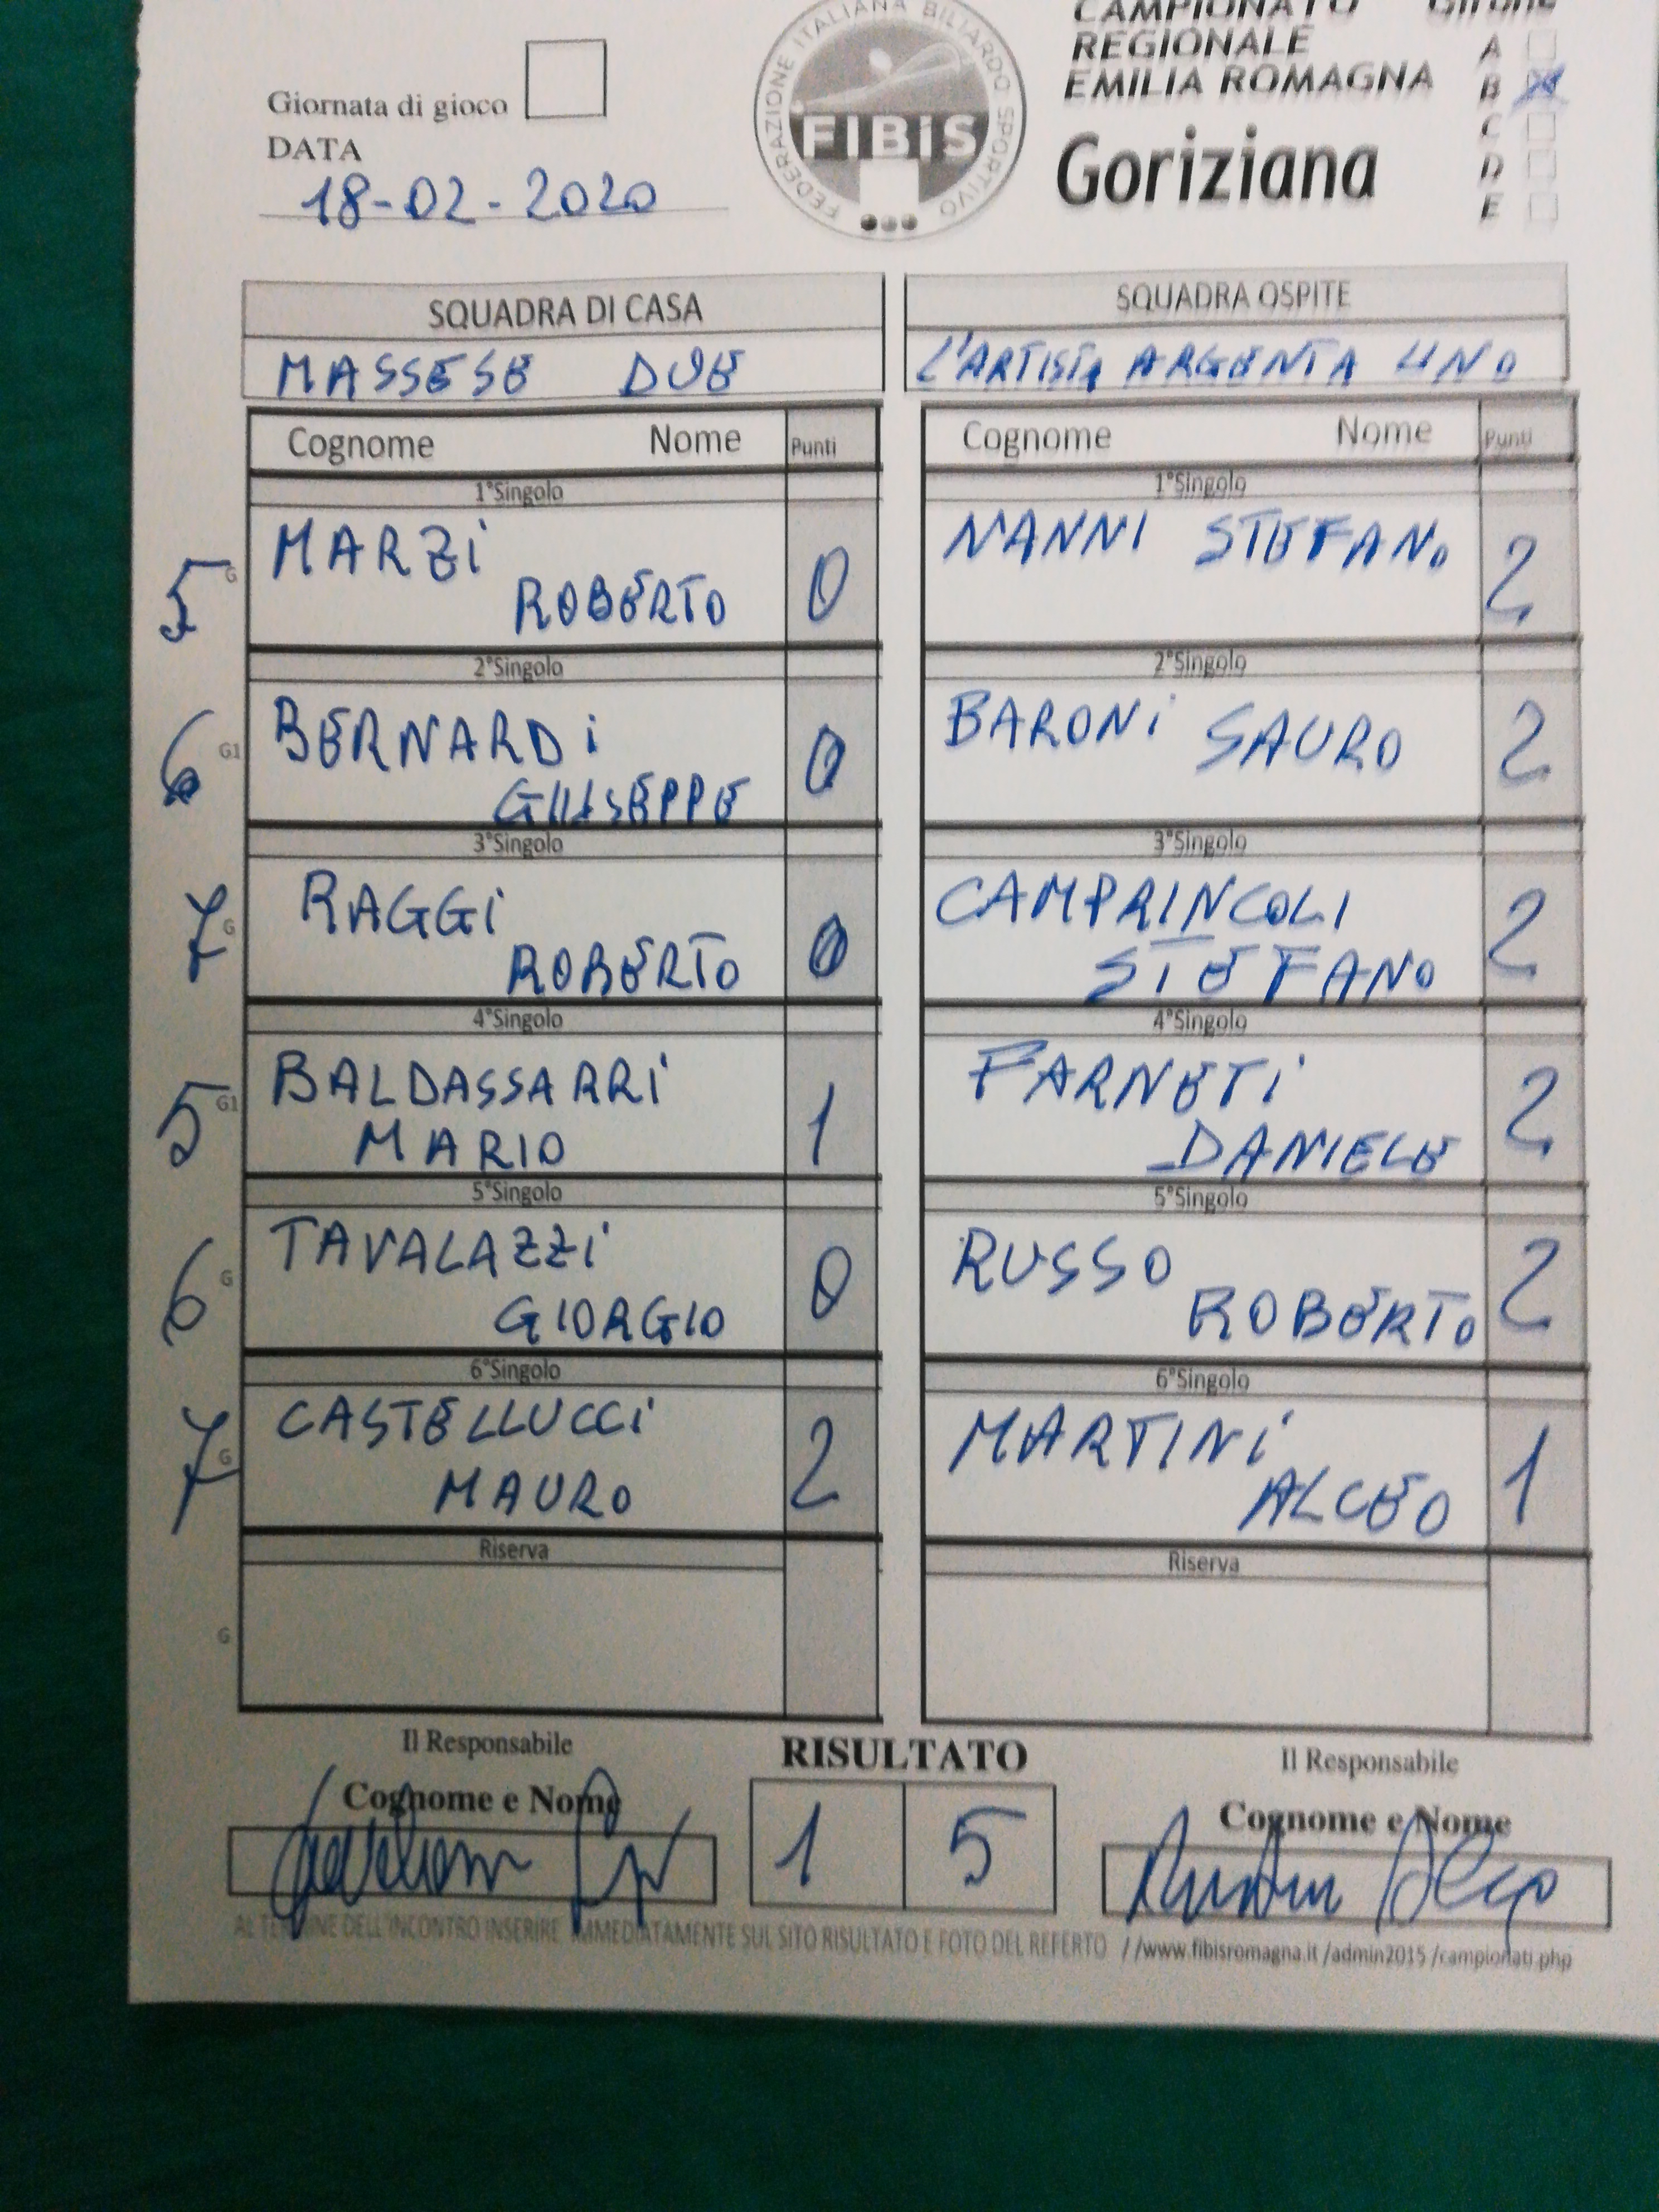 CAMPIONATO Girone
REGIONALE A
EMILIA ROMAGNA B
Goriziana C
D
E
Giornata di gioco
DATA
18-02-2020
FEDERAZIONE ITALIANA BILIARDO SPORTIVO
FIBiS
SQUADRA DI CASA SQUADRA OSPITE
MASSESE DUE L'ARTISTA ARGENTA UNO
Cognome Nome Punti Cognome Nome Punti
1°Singolo 1°Singolo
5 G MARZi ROBERTO 0 NANNI STEFANO 2
2°Singolo 2°Singolo
6 G1 BERNARDi GIUSEPPE 0 BARONi SAURO 2
3°Singolo 3°Singolo
7 G RAGGi ROBERTO 0 CAMPRINCOLI STEFANO 2
4°Singolo 4°Singolo
5 G1 BALDASSARRi MARIO 1 FARNETi DANIELE 2
5°Singolo 5°Singolo
6 G TAVALAZZi GIORGIO 0 RUSSO ROBERTO 2
6°Singolo 6°Singolo
7 G CASTELLUCCi MAURO 2 MARTINi ALCEO 1
Riserva Riserva
G
Il Responsabile RISULTATO Il Responsabile
Cognome e Nome 1 5 Cognome e Nome
AL TERMINE DELL'INCONTRO INSERIRE IMMEDIATAMENTE SUL SITO RISULTATO E FOTO DEL REFERTO //www.fibisromagna.it /admin2015 /campionati.php